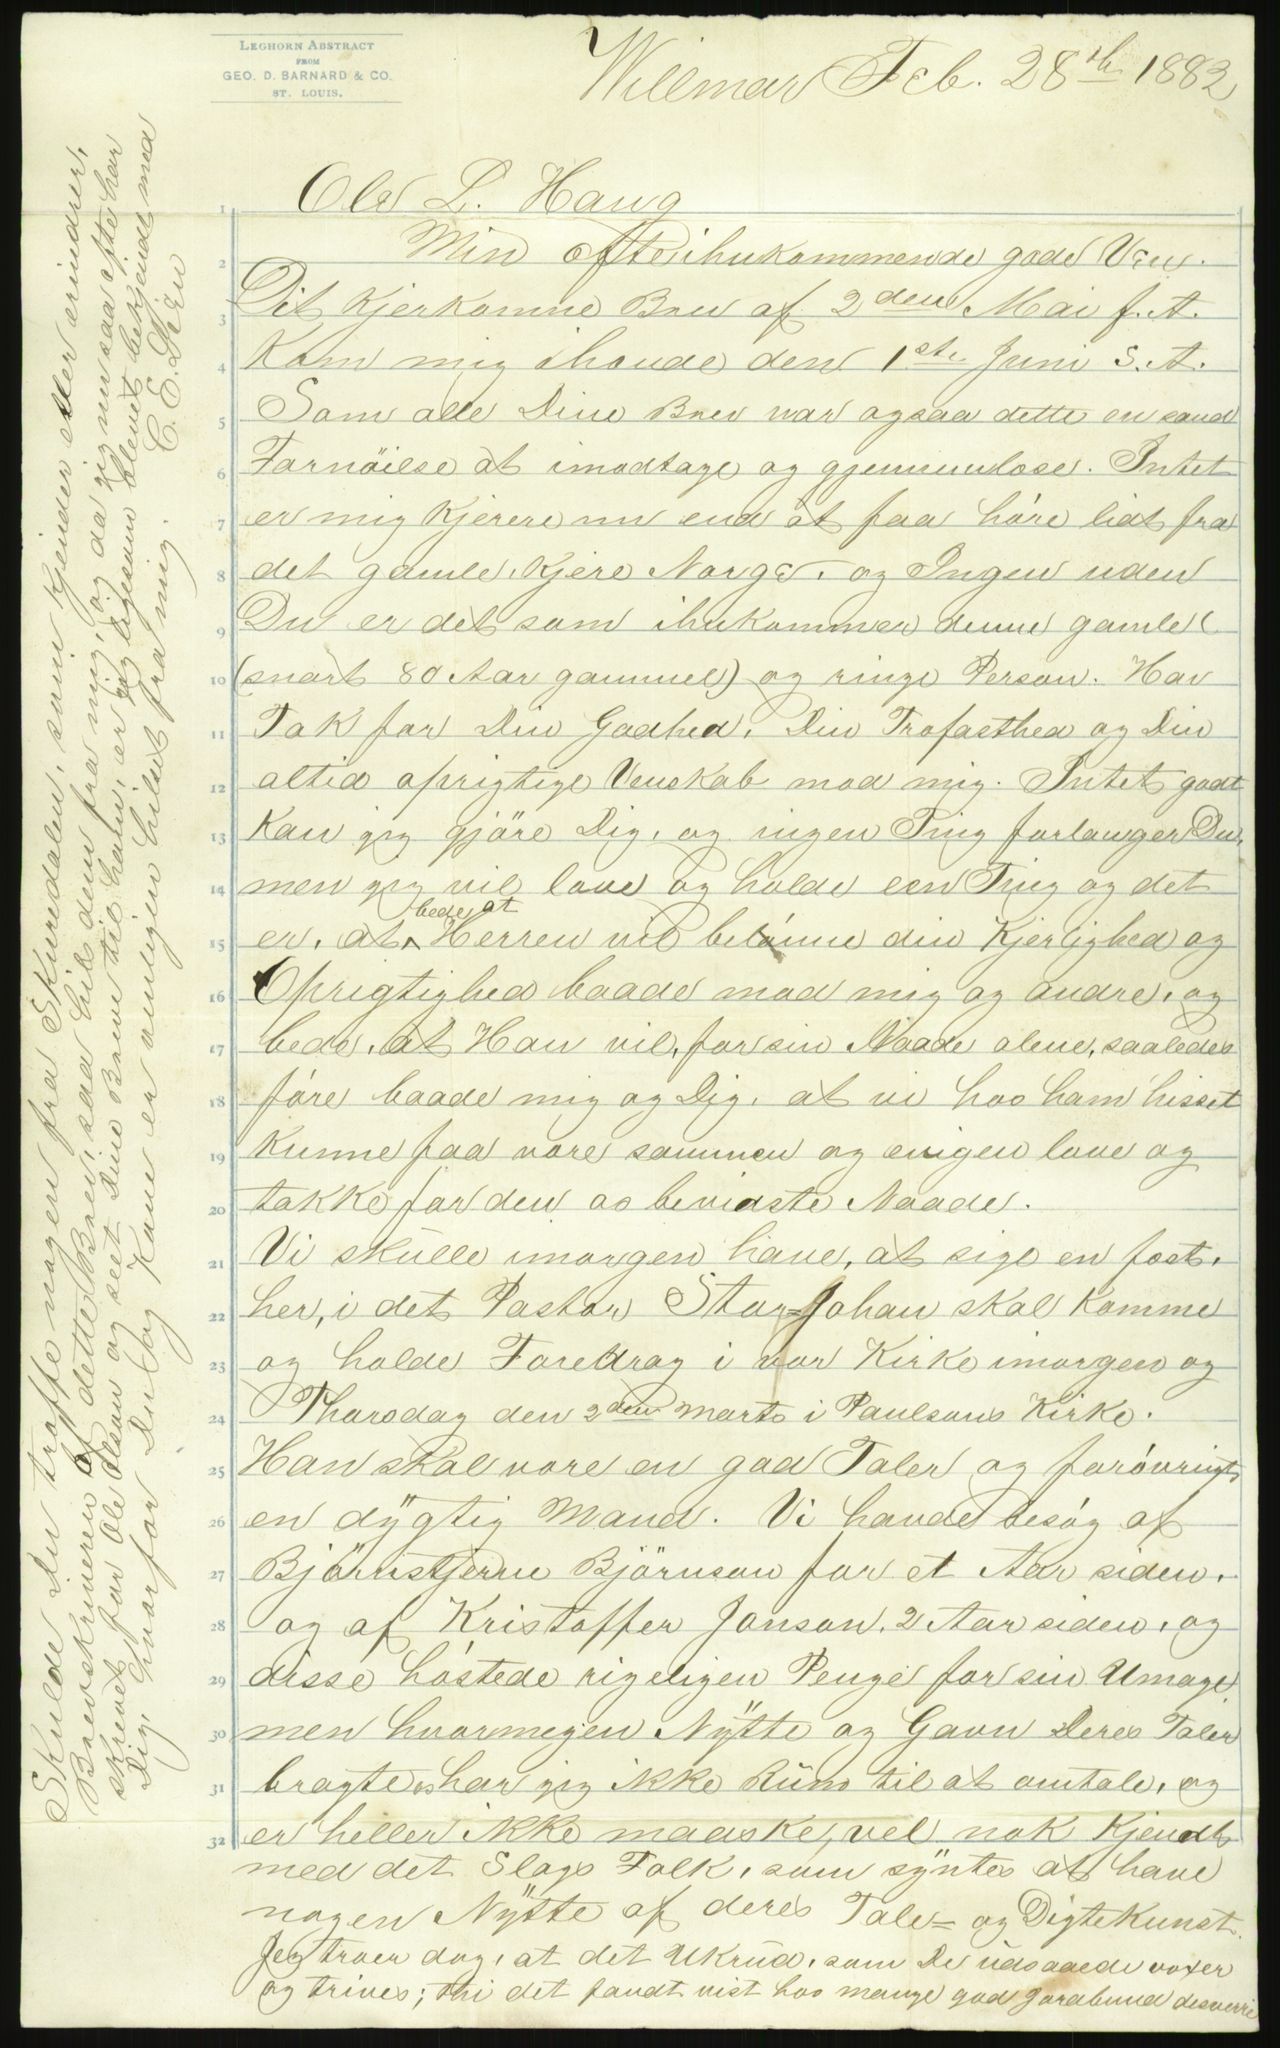 LEGHORN ABSTRACT
FROM
GEO. D. BARNARD & CO.
ST. LOUIS.
Willmar Feb. 28th 1882
Ole L. Haug
Min ofte ihukommende gode Ven.
Dit Kjerkomne Brev af 2den Mai f. A.
Kom mig ihænde den 1ste Juni S. A.
Som alle Dine Brev var ogsaa dette en sand
Fornöielse at imodtage og gjennemlæse. Intet
er mig Kjerere nu end at faa höre lidt fra
det gamle, Kjere Norge, og Ingen uden
Du er det som ihukommer denne gamle
(snart 80 Aar gammel) og ringe Person. Hav
Tak for Din Godhed, Din Trofasthed og Din
altid oprigtige Venskab mod mig. Intet godt
Kan jeg gjöre Dig, og ingen Ting forlanger Du,
men jeg vil love og holde een Ting og det
er, at bede at Herren vil belönne din Kjerlighed og
Oprigtighed baade mod mig og andre, og
bede, at Han vil, for sin Naade alene, saaledes
före baade mig og Dig, at vi hos ham hisset
Kunne faa være sammen og evigen love og
takke for den os beviaste Naade.
Vi skulle imorgen have, at sige en fest,
her, i det Pastor Stor=Johan skal Komme
og holde Foredrag i vor Kirke imorgen og
Thorsdag den 2den Marts i Paulsons Kirke.
Han skal være en god Taler og forövrigt
en dygtig Mand. Vi havde besög af
Björnstjerne Björnson for et Aar siden,
og af Kristoffer Jonson, 2 Aar siden, og
disse höstede rigeligen Penge for sin Umage
men hvormegen Nytte og Gavn Deres Taler
bragte os har jeg ikke Rüm til at omtale, og
er heller ikke maaske, vel nok Kjendt
med det Slags Folk, som syntes at have
nogen Nytte af deres Tale= og Digtekunst.
Jeg troer dog, at det Ukrüd, som De üdsaaede voxer
og trives; thi det fandt vist hos mange god Jordbund desverre
Skulde Du træffe nogen fra Skuredalen, som Kjender eller erindrer,
Brevskriveren af dette Brev, saa hils dem fra mig, og da jeg nu saa ofte har
skrevet for Ole Olson og seet Dine Breve til ham, er jeg ligesom blevet bekjendt med
Dig, hvorfor Du og Kone er venligen hilset fra mig.
C. E. Lien